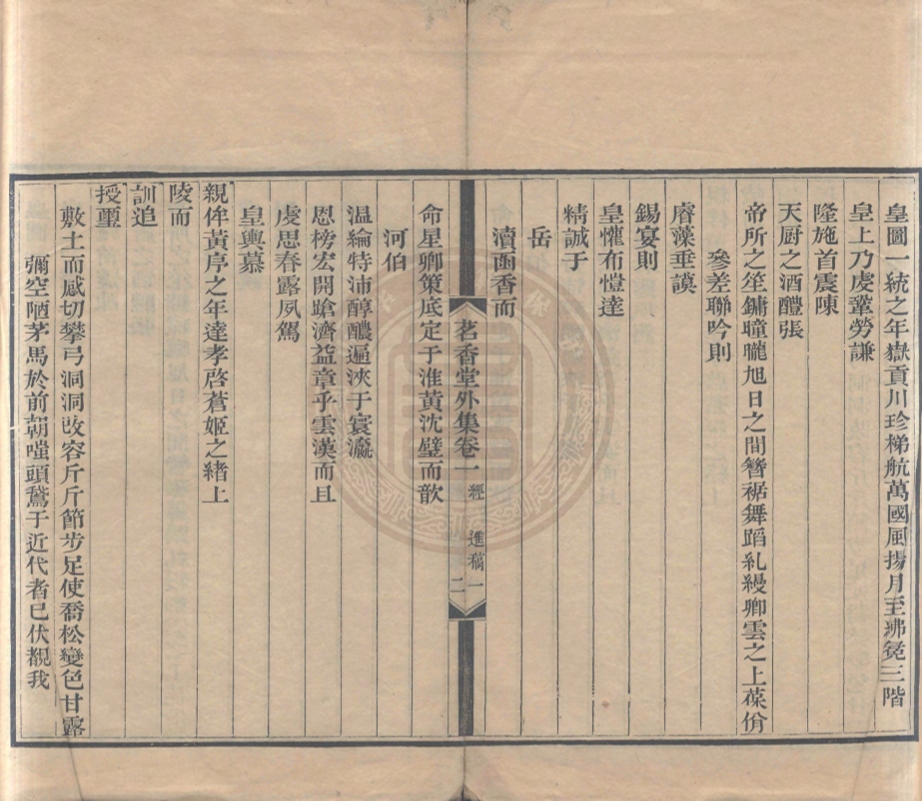 皇圖一統之年嶽貢川珍梯航萬國風揚月至鼏冕三階
皇上乃虔鞏勞謙
隆施首震陳
天厨之酒醴張
帝所之笙鏞曈曨旭日之間簪裾舞蹈糺縵卿雲之上葆佾
參差聯吟則
睿藻垂謨
錫宴則
皇懽布愷達
精誠于
岳
瀆函香而
茗香堂外集卷一 經進稿一 二
命星卿策底定于淮黃沈璧而歆
河伯
溫綸特沛醇醲遍浹于寰瀛
恩榜宏開蹌濟益章乎雲漢而且
虔思春露夙駕
皇輿慕
親侔黃序之年達孝啓蒼姬之緒上
陵而
訓追
授璽
敷土而感切攀弓洞洞改容斤斤節步足使喬松變色甘露
彌空陋茅馬於前朝嗤頭鵞于近代者已伏覩我